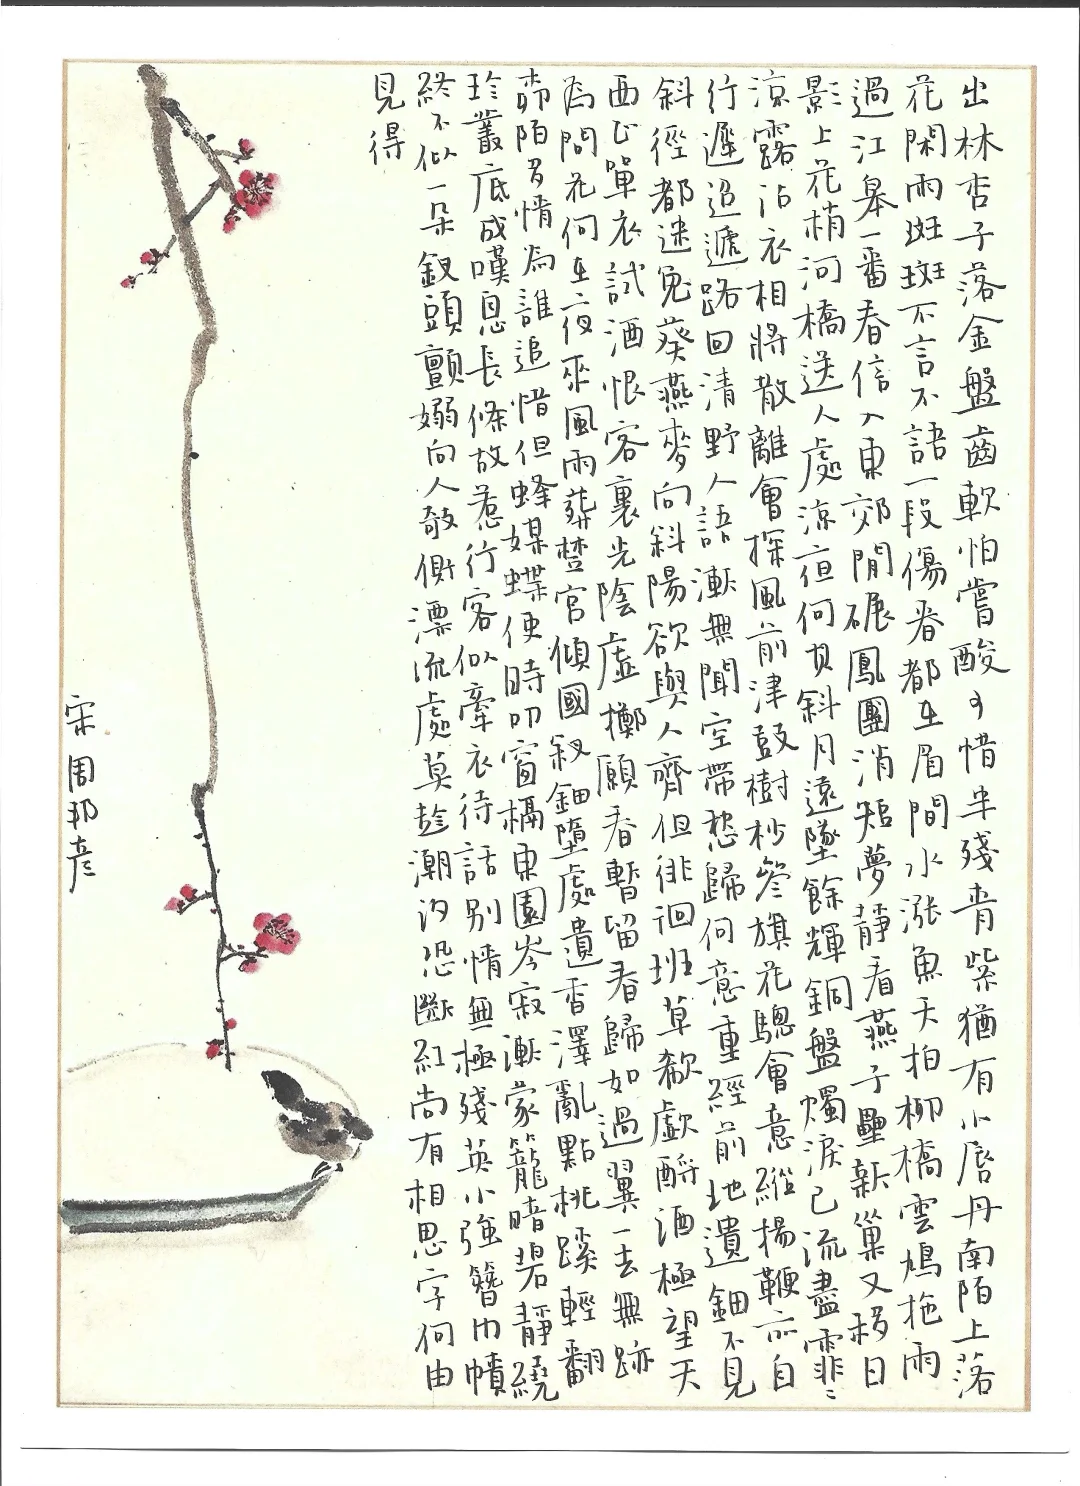 出林杏子落金盤齒軟怕嘗酸可惜半殘青紫猶有小唇丹南陌上落
花閑雨斑斑不言不語一段傷春都在眉間水漲魚天拍柳橋雲鳩拖雨
過江皋一番春信入東郊閒碾鳳團消短夢靜看燕子壘新巢又移日
影上花梢河橋送人處涼夜何其斜月遠墜餘輝銅盤燭淚已流盡霏霏
涼露沾衣相將散離會探風前津鼓樹杪參旗花驄會意縱揚鞭亦自
行遲迢遞路回清野人語漸無聞空帶愁歸何意重經前地遺鈿不見
斜徑都迷兔葵燕麥向斜陽欲與人齊但徘徊班草欷歔酹酒極望天
西正單衣試酒恨客裏光陰虛擲願春暫留春歸如過翼一去無跡
為問花何在夜來風雨葬楚宮傾國釵鈿墮處遺香澤亂點桃蹊輕翻
柳陌多情為誰追惜但蜂媒蝶使時叩窗槅東園岑寂漸蒙籠暗碧靜繞
珍叢底成嘆息長條故惹行客似牽衣待話別情無極殘英小強簪巾幘
終不似一朵釵頭顫嫋向人欹側漂流處莫趁潮汐恐斷紅尚有相思字何由
見得
宋周邦彥